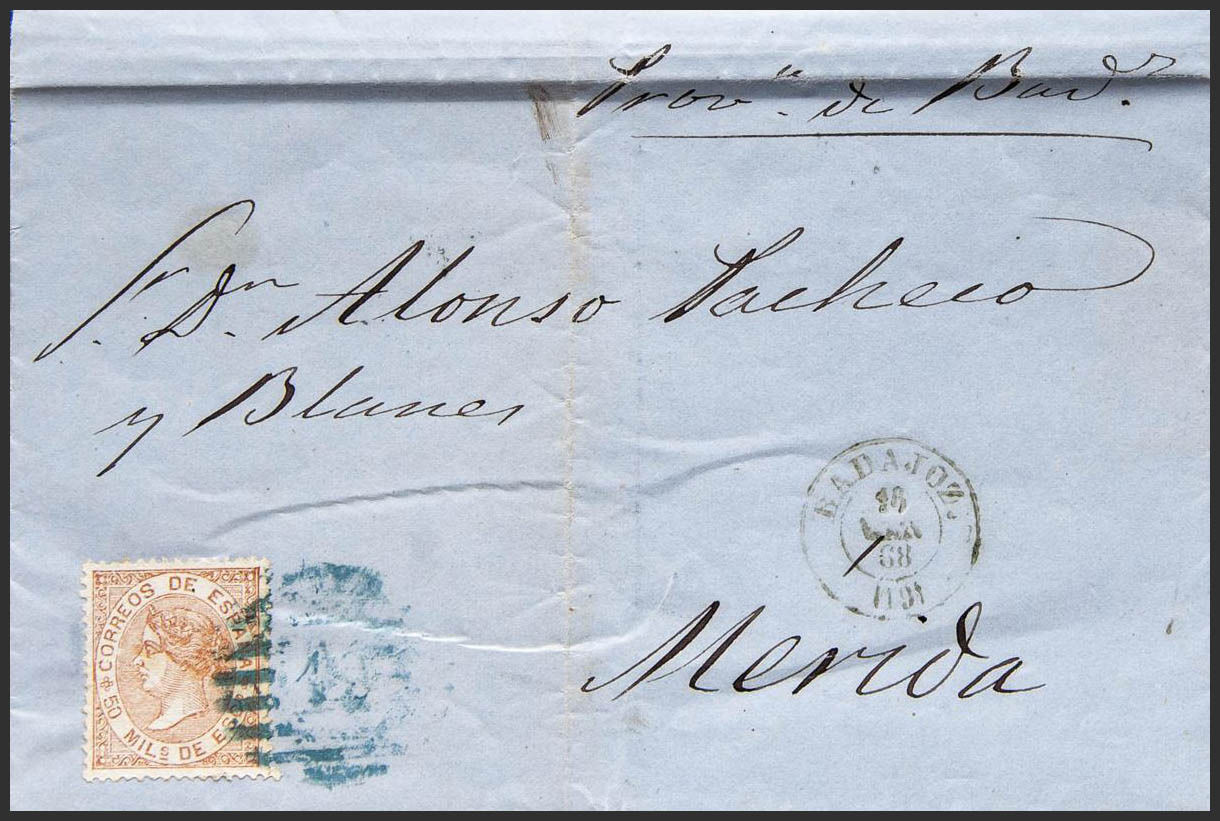 Prov.ª de Bad.z
Sr. Dn. Alonso Pacheco
y Blanes
BADAJOZ.
68
Merida
CORREOS DE ESPAÑA
50 MILs DE ESC